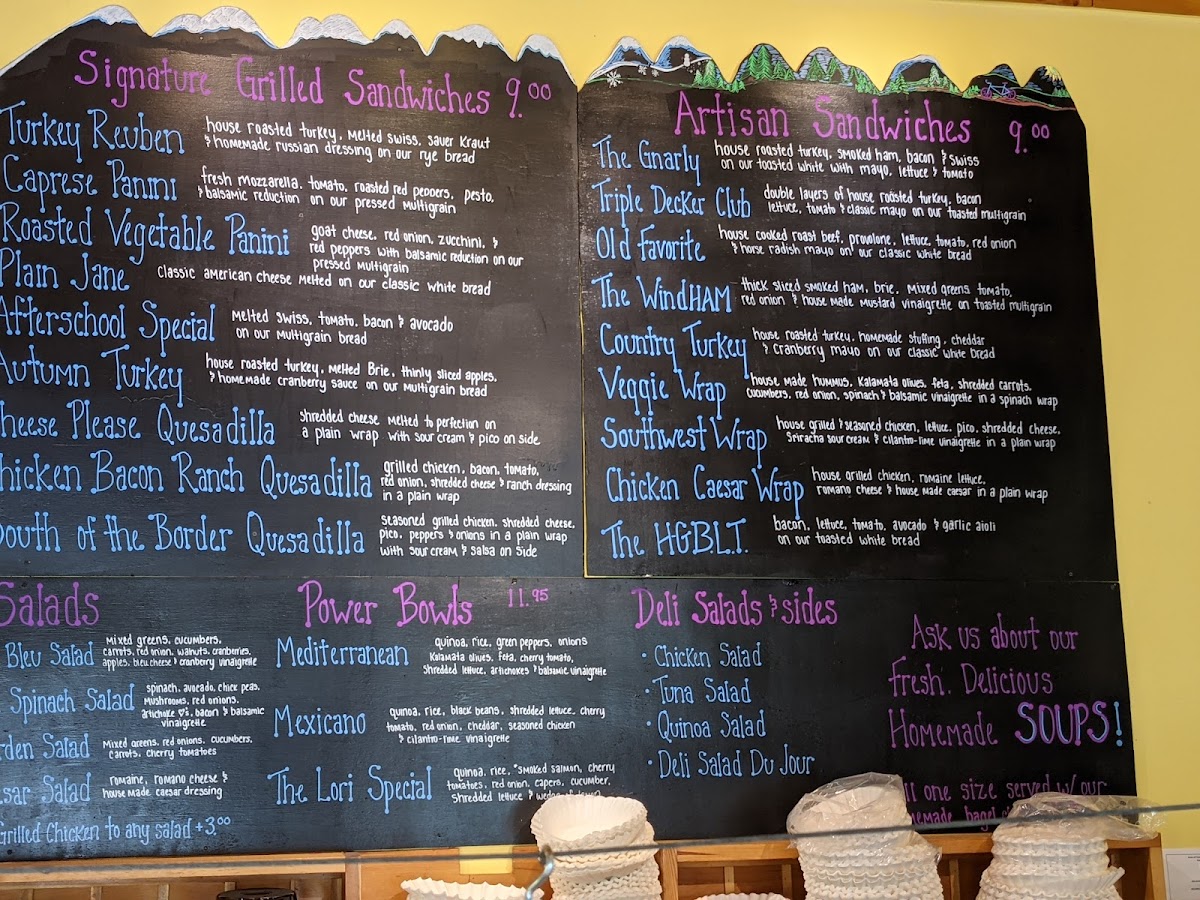 Signature Grilled Sandwiches 9.00
Turkey Reuben
house roasted turkey, melted swiss, sauer kraut
& homemade russian dressing on our rye bread
Caprese Panini
fresh mozzarella, tomato, roasted red peppers, pesto,
& balsamic reduction on our pressed multigrain
Roasted Vegetable Panini
goat cheese, red onion, zucchini, &
red peppers with balsamic reduction on our
pressed multigrain
Plain Jane
classic american cheese melted on our classic white bread
Afterschool Special
melted swiss, tomato, bacon & avocado
on our multigrain bread
Autumn Turkey
house roasted turkey, melted Brie, thinly sliced apples,
& homemade cranberry sauce on our multigrain bread
Cheese Please Quesadilla
shredded cheese melted to perfection on
a plain wrap with sour cream & pico on side
Chicken Bacon Ranch Quesadilla
grilled chicken, bacon, tomato,
red onion, shredded cheese & ranch dressing
in a plain wrap
South of the Border Quesadilla
seasoned grilled chicken, shredded cheese,
pico, peppers & onions in a plain wrap
with sour cream & salsa on side
Artisan Sandwiches 9.00
The Gnarly
house roasted turkey, smoked ham, bacon & swiss
on our toasted white with mayo, lettuce & tomato
Triple Decker Club
double layers of house roasted turkey, bacon
lettuce, tomato & classic mayo on our toasted multigrain
Old Favorite
house cooked roast beef, provolone, lettuce, tomato, red onion
& horse radish mayo on our classic white bread
The WindHAM
thick sliced smoked ham, brie, mixed greens, tomato,
red onion & house made mustard vinaigrette on toasted multigrain
Country Turkey
house roasted turkey, homemade stuffing, cheddar
& cranberry mayo on our classic white bread
Veggie Wrap
house made hummus, kalamata olives, feta, shredded carrots,
cucumbers, red onion, spinach & balsamic vinaigrette in a spinach wrap
Southwest Wrap
house grilled & seasoned chicken, lettuce, pico, shredded cheese,
Sriracha sour cream & cilantro-lime vinaigrette in a plain wrap
Chicken Caesar Wrap
house grilled chicken, romaine lettuce,
romano cheese & house made caesar in a plain wrap
The H.G.B.L.T.
bacon, lettuce, tomato, avocado & garlic aioli
on our toasted white bread
Salads
Bleu Salad
mixed greens, cucumbers,
carrots, red onion, walnuts, cranberries,
apples, bleu cheese & cranberry vinaigrette
Spinach Salad
spinach, avocado, chick peas,
mushrooms, red onions,
artichoke ♡s, bacon & balsamic
vinaigrette
rden Salad
mixed greens, red onions, cucumbers,
carrots, cherry tomatoes
esar Salad
romaine, romano cheese &
house made caesar dressing
Grilled Chicken to any salad +3.00
Power Bowls 11.95
Mediterranean
quinoa, rice, green peppers, onions
Kalamata olives, feta, cherry tomato,
shredded lettuce, artichokes & balsamic vinaigrette
Mexicano
quinoa, rice, black beans, shredded lettuce, cherry
tomato, red onion, cheddar, seasoned chicken
& cilantro-lime vinaigrette
The Lori Special
quinoa, rice, *smoked salmon, cherry
tomatoes, red onion, capers, cucumber,
shredded lettuce & wedge of lemon
Deli Salads & sides
· Chicken Salad
· Tuna Salad
· Quinoa Salad
· Deli Salad Du Jour
Ask us about our
Fresh, Delicious
Homemade SOUPS!
ll one size served w/ our
memade bagel